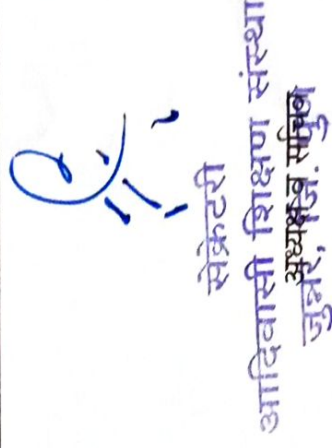 सेक्रेटरी
आदिवासी शिक्षण संस्था
अध्यक्ष व सचिव
जुन्नर, जि. पुणे